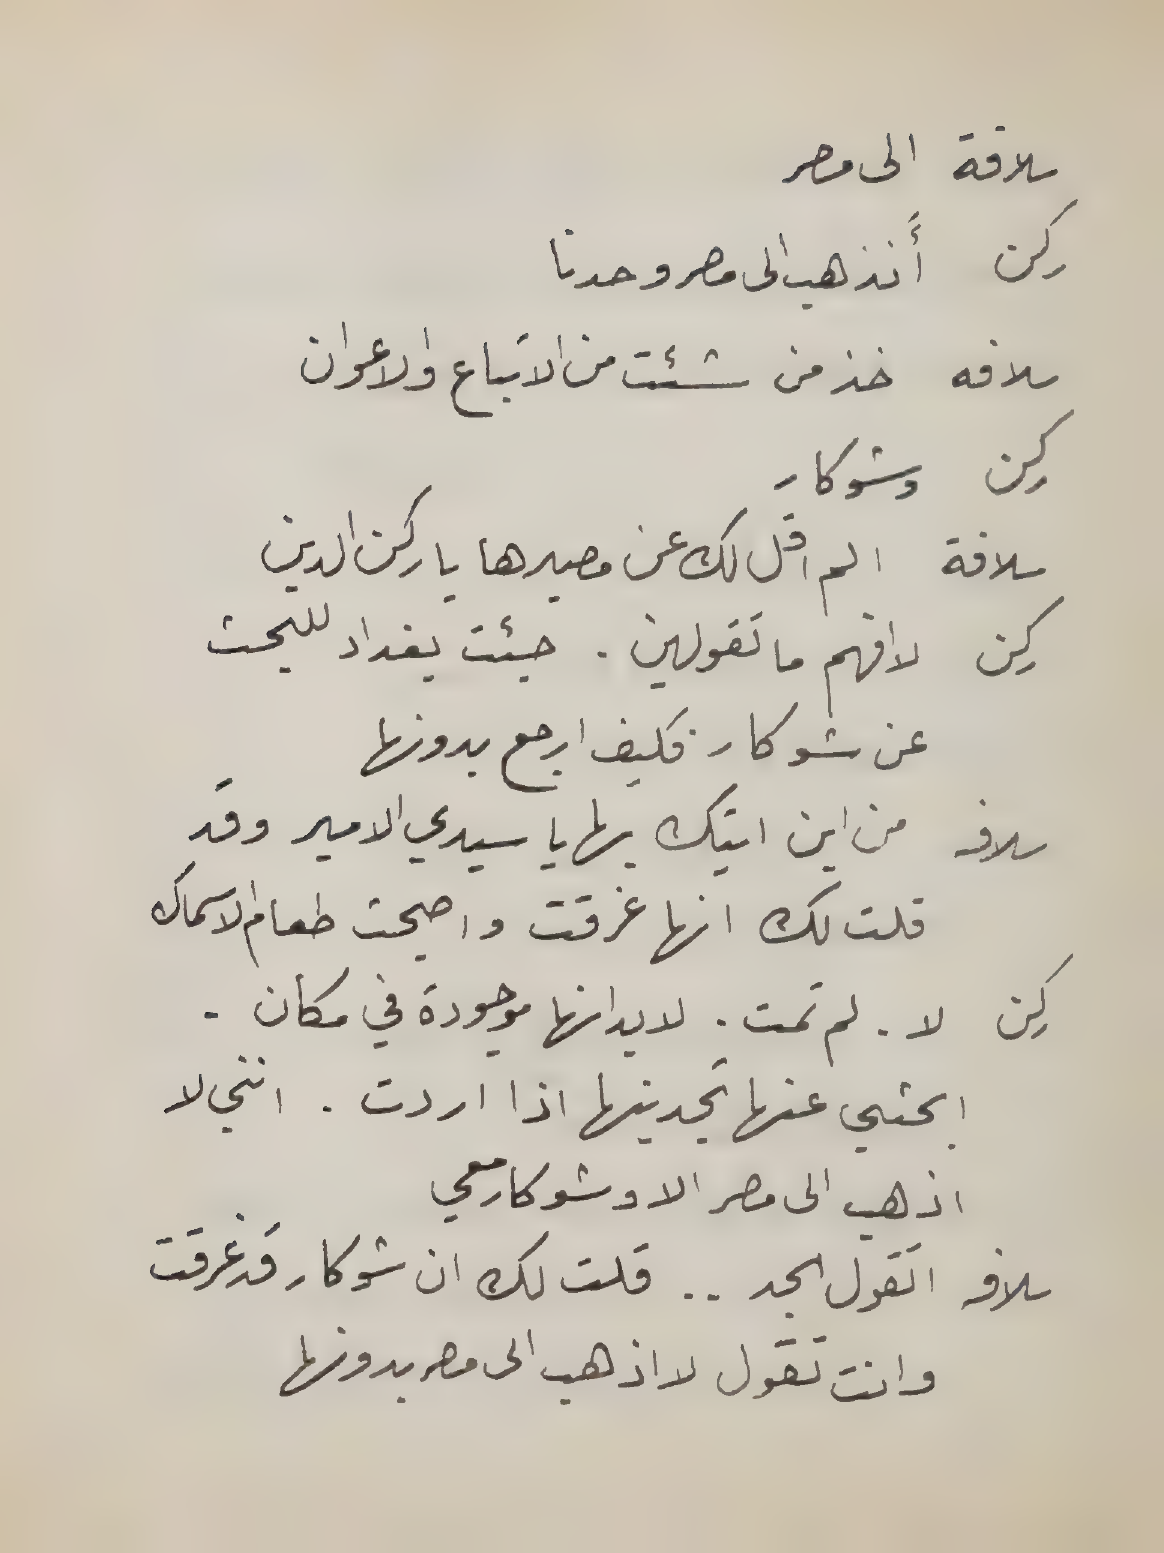 سلافة الى مصر
ركن أنذهب الى مصر وحدنا
سلافه خذ من شئت من الاتباع والاعوان
ركن وشوكار
سلافة الم اقل لك عن مصيرها يا ركن الدين
ركن لا افهم ما تقولين . جئت بغداد للبحث
عن شوكار فكيف ارجع بدونها
سلافه من اين اتيك بها يا سيدي الامير وقد
قلت لك انها غرقت واصبحت طعام الاسماك
ركن لا . لم تمت . لابد انها موجودة في مكان .
ابحثي عنها تجدينها اذا اردت . انني لا
اذهب الى مصر الا وشوكار معي
سلافه اتقول الجد .. قلت لك ان شوكار قد غرقت
وانت تقول لا اذهب الى مصر بدونها